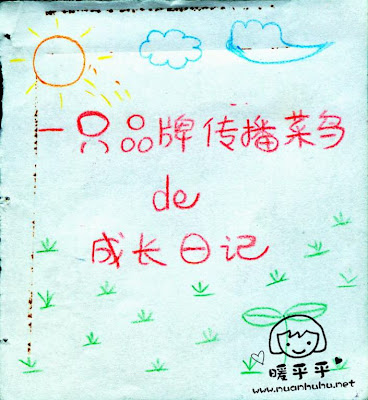 一只品牌传播菜鸟
de
成长日记
暖乎乎
www.nuanhuhu.net